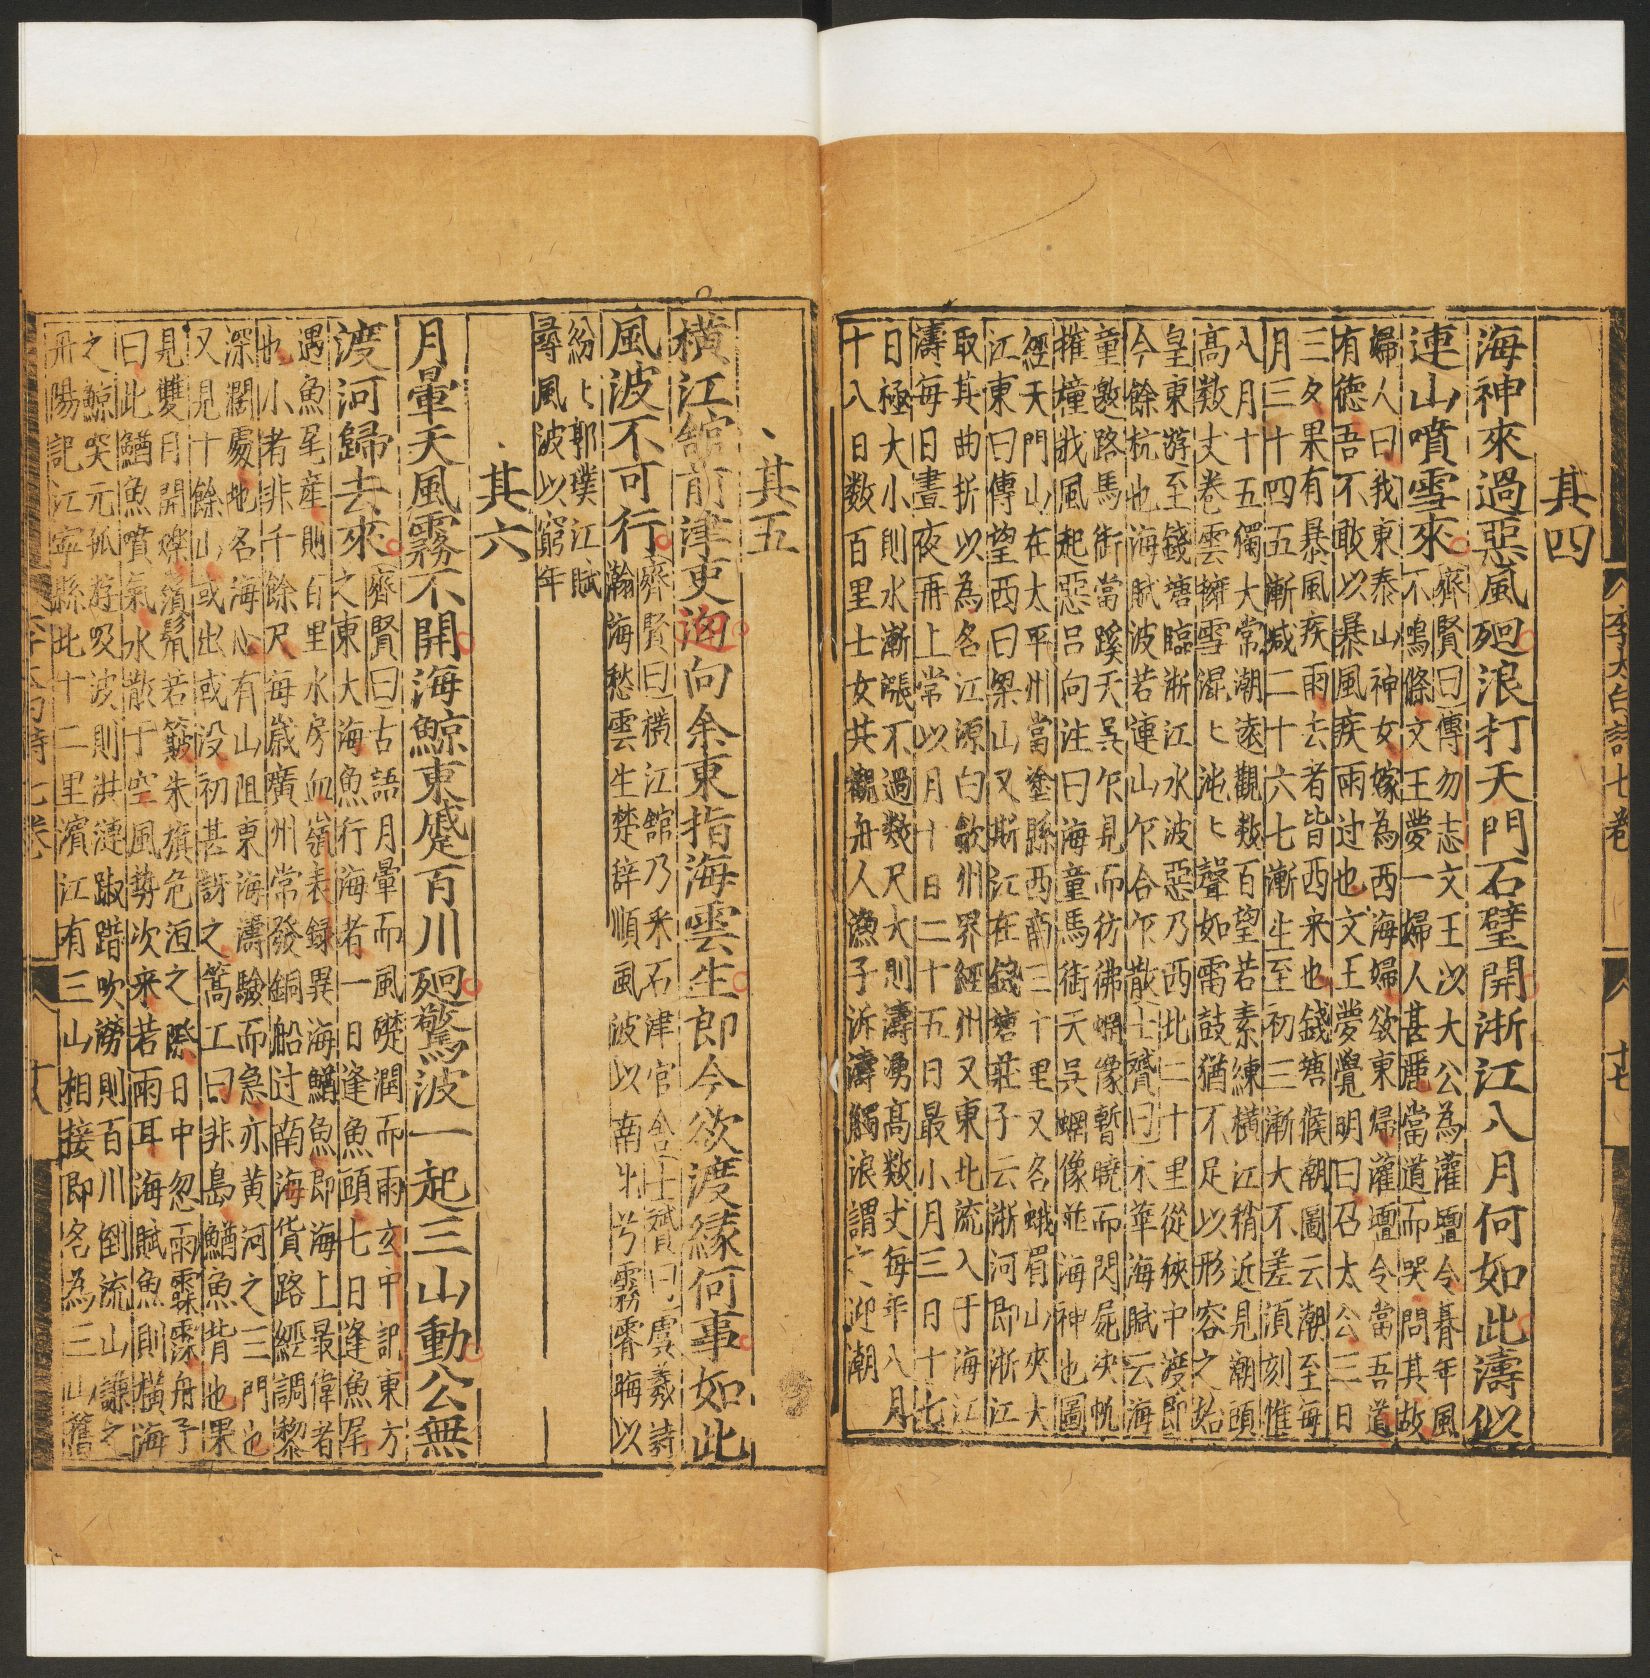 其四
海神來過惡風廻浪打天門石壁開浙江八月何如此濤似
連山噴雪來
齊賢曰博勿志文王以大公為灌壇令朞年風
不鳴條文王夢一婦人甚麗當道而哭問其故
婦人曰我東泰山神女嫁為西海婦欲東歸灌壇令當吾道
有德吾不敢以暴風疾雨过也文王夢覺明日召太公三日
三夕果有暴風疾雨去者皆西来也錢塘候潮圖云潮至每
月三十四五漸减二十六七漸生至初三漸大不差頃刻惟
八月十五獨大常潮遠觀数百望若素練橫江稍近見潮頭
高数丈卷雲擁雪混ヒ沌ヒ聲如雷鼓猶不足以形容之始
皇東游至錢塘臨浙江水波惡乃西北二十里從狹中渡即
今餘杭也海賦波若連山乍合乍散士贇曰木華海賦云海
童邀路馬銜當蹊天吳乍見而彷彿蝄像暫曉而閃屍决帆
摧橦戕風起惡吕向注曰海童馬銜天吳蝄像並海神也圖
經天門山在太平州當塗縣西南三十里又名蛾眉山夾大
江東曰傳望西曰梁山又浙江在錢塘莊子云浙河即浙江
取其曲折以為名江源白歙州界經州又東北流入于海江
濤每日晝夜再上常以月十日二十五日最小月三日十七
日極大小則水漸漲不過数尺大則濤湧高数丈每年八月
十八日数百里士女共觀舟人漁子泝濤觸浪謂之迎潮
李太白詩七卷
十七
其五
橫江舘前津吏迎向余東指海雲生郎今欲渡緣何事如此
風波不可行
齊賢曰橫江舘乃采石津官舍士贇曰虞羲詩
瀚海愁雲生楚辞順風波以南北兮霧霄晦以
紛ヒ郭璞江賦
尋風波以窮年
其六
月暈天風霧不開海鯨東蹙百川廻驚波一起三山動公無
渡河歸去來
齊賢曰古語月暈而風礎潤而雨玄中記東方
之東大海魚行海者一日逢魚頭七日逢魚尾
遇魚尾産則百里水房血嶺表録異海鰌魚即海上最偉者
也小者非千餘尺每歲廣州常發銅船过南海貨路經調黎
深濶處地名海心有山阻東海濤險而急亦黄河之三門也
又見十餘山或出或没初甚訝之篙工曰非島鰌魚背也果
見雙目開爍濱鬐若簸朱旗危沍之際日中忽雨霂霂舟子
曰此鰌魚噴氣水散于空風勢次来若雨耳海賦魚則橫海
之鯨突兀孤游吸波則洪漣踧踖吹澇則百川倒流山謙之
丹陽記江寧縣北十二里濱江有三山相接即名為三山舊